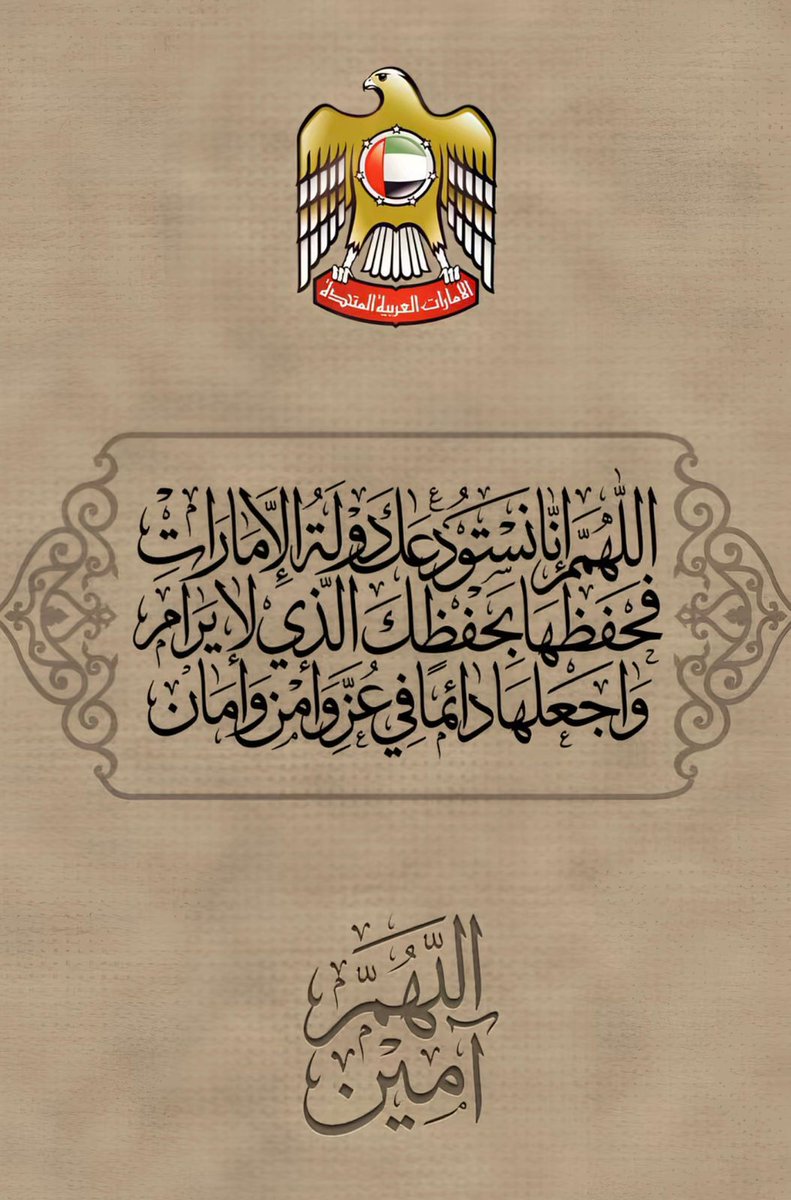 الامارات العربية المتحدة
اللَّهُمَّ إِنَّا نَسْتَوْدِعُكَ دَوْلَةُ الإَمَارَاتِ
فَحَفَظْهَا بِحَفْظِكَ الَّذِي لَا يُرَام
وَاجَعَلهَا دَائمًا فِي عُزِّ وَأَمْنٍ وَأَمَان
اللَّهُمَّ
آمِيْن